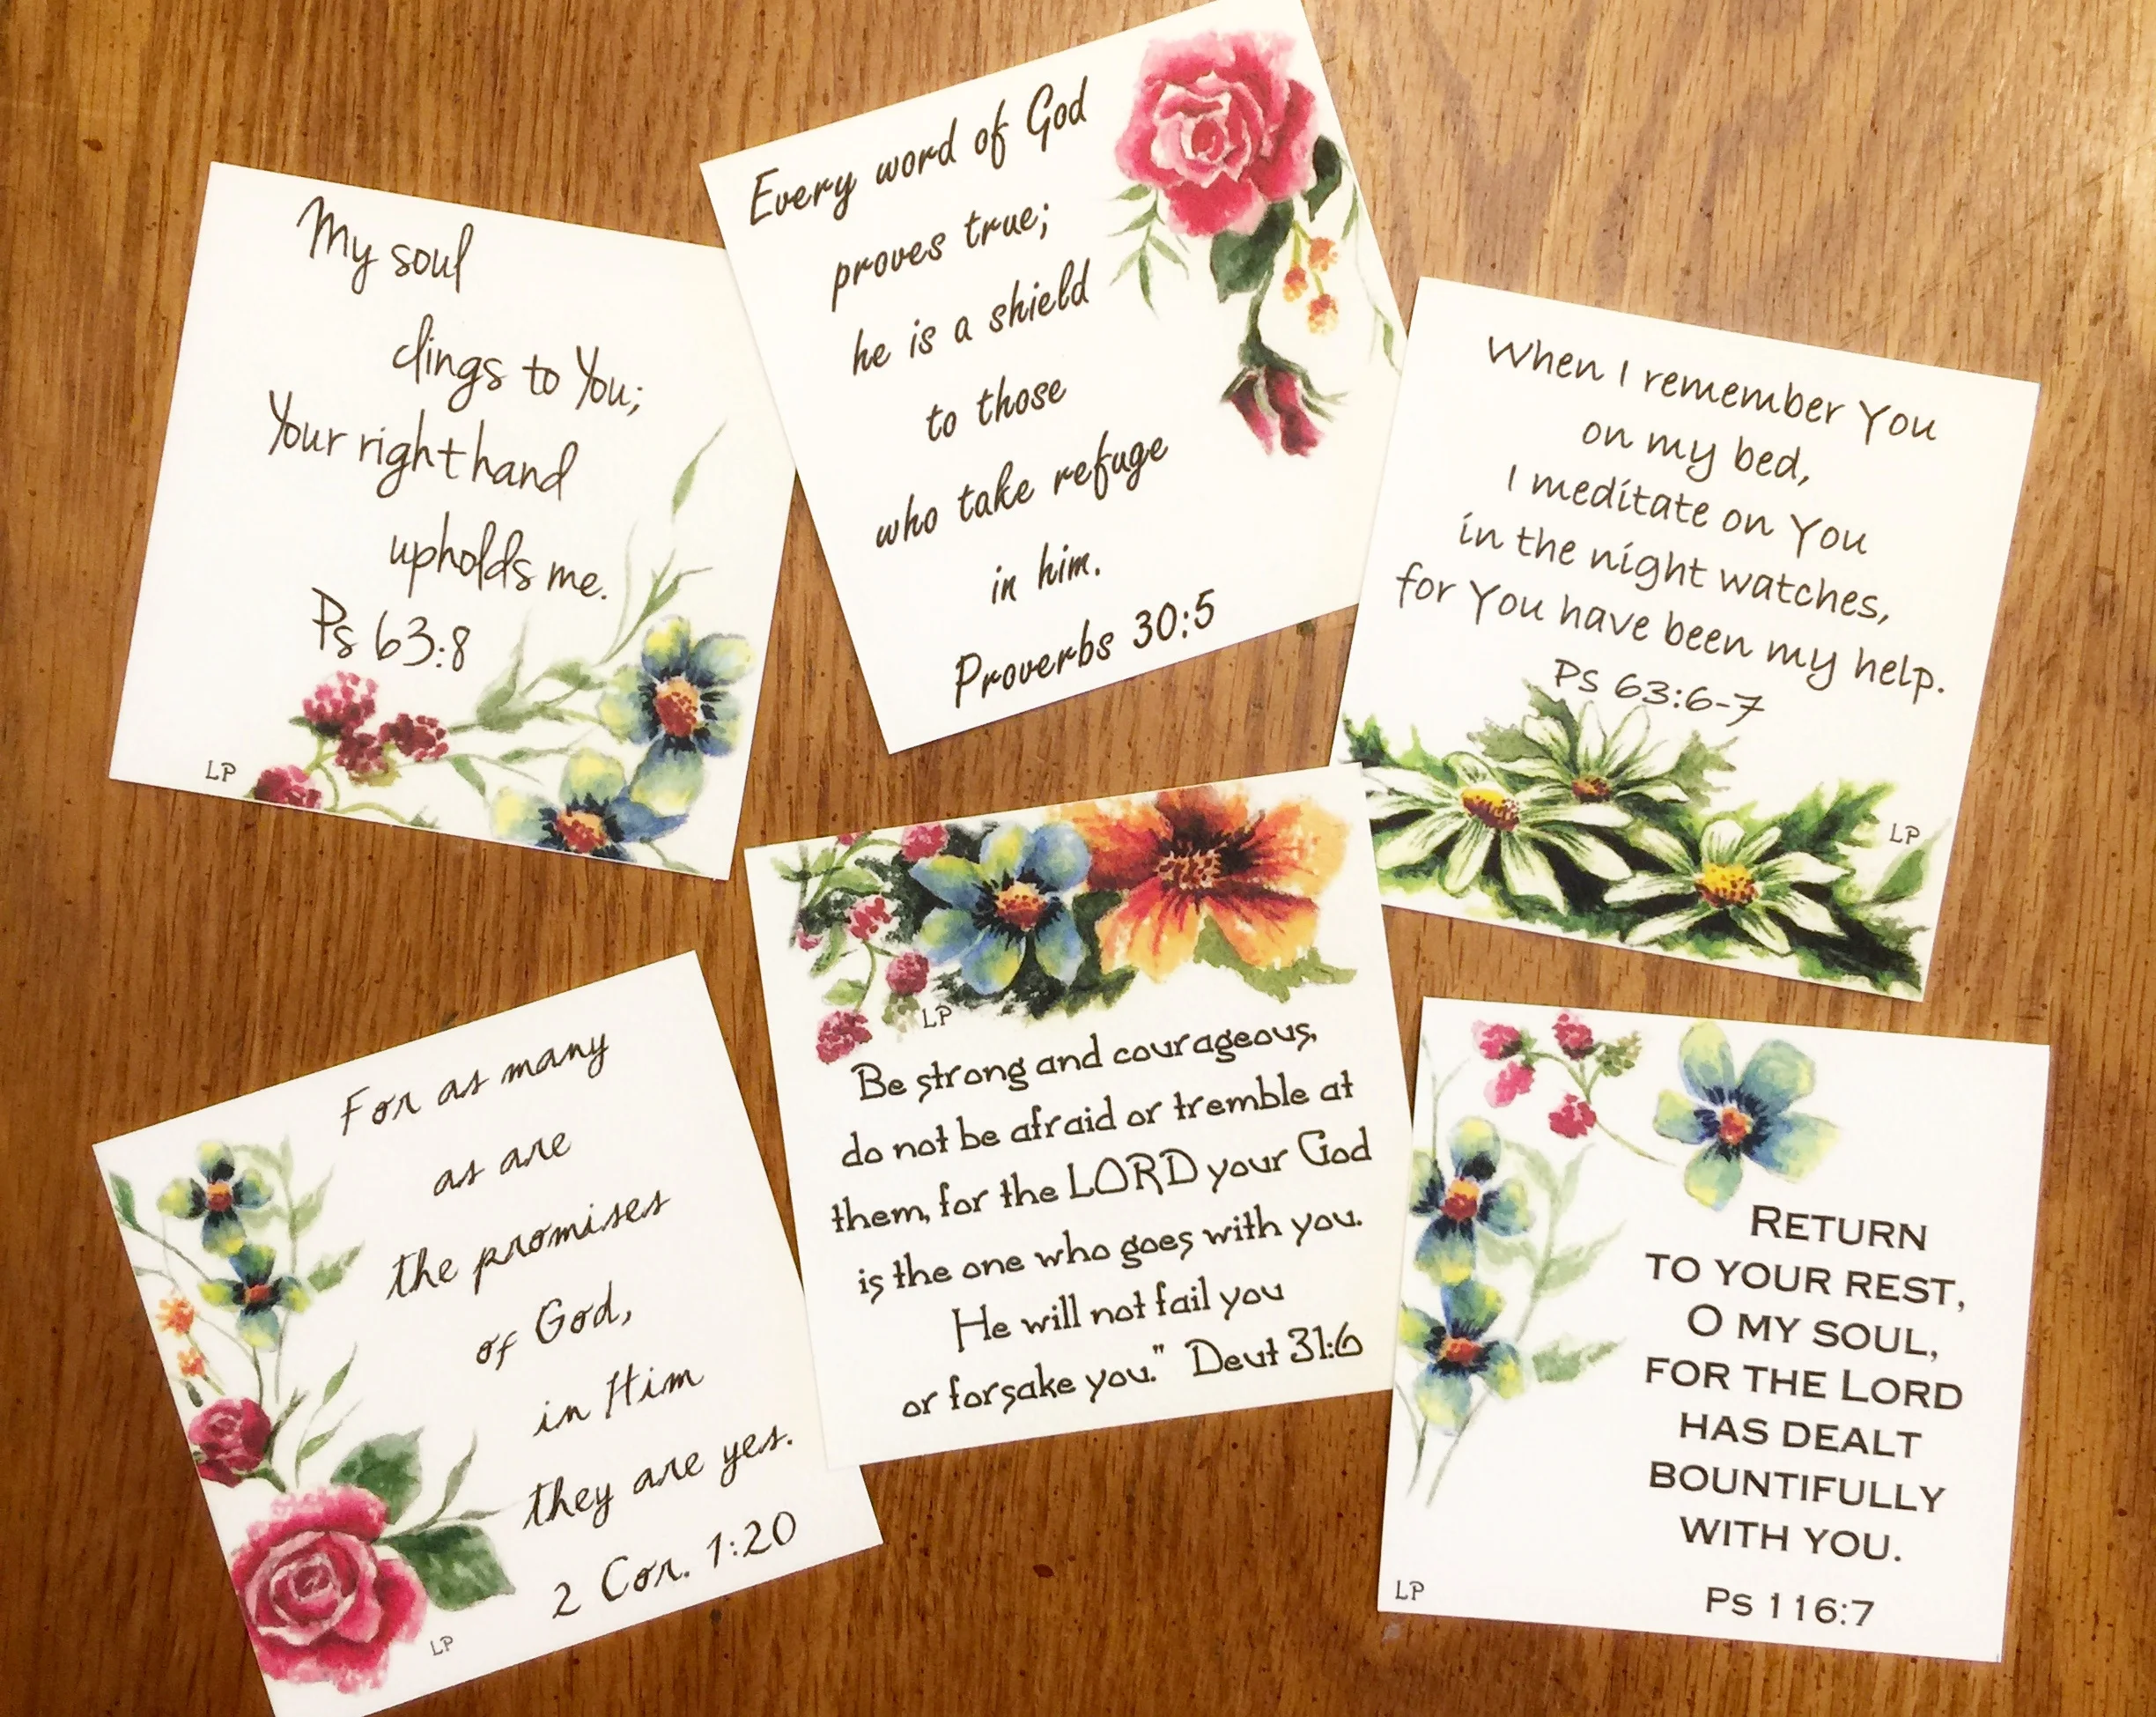 My soul
clings to You;
Your right hand
upholds me.
Ps 63:8
LP
Every word of God
proves true;
he is a shield
to those
who take refuge
in him.
Proverbs 30:5
When I remember You
on my bed,
I meditate on You
in the night watches,
for You have been my help.
Ps 63:6-7
LP
For as many
as are
the promises
of God,
in Him
they are yes.
2 Cor. 1:20
LP
LP
Be strong and courageous,
do not be afraid or tremble at
them, for the LORD your God
is the one who goes with you.
He will not fail you
or forsake you." Deut 31:6
RETURN
TO YOUR REST,
O MY SOUL,
FOR THE LORD
HAS DEALT
BOUNTIFULLY
WITH YOU.
PS 116:7
LP